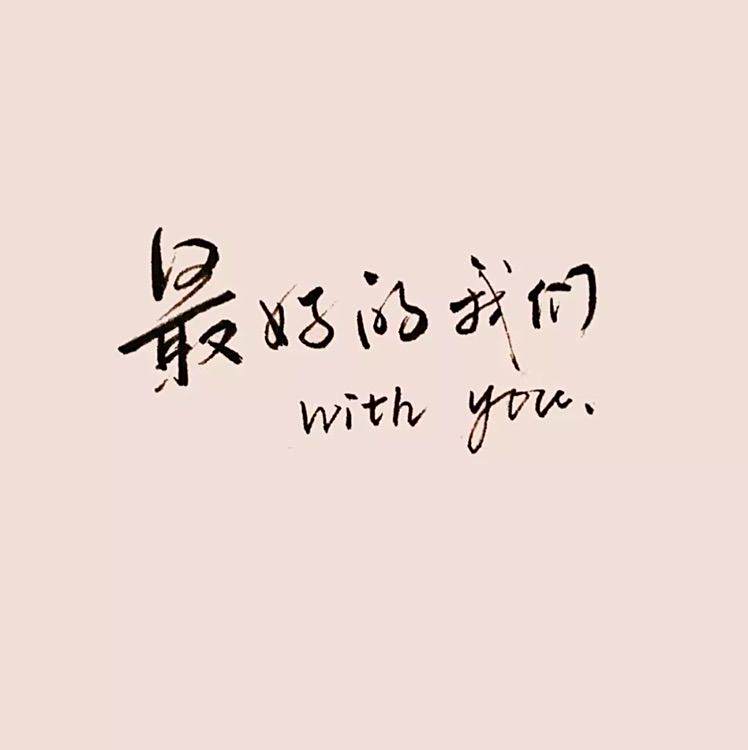 最好的我们
with you.